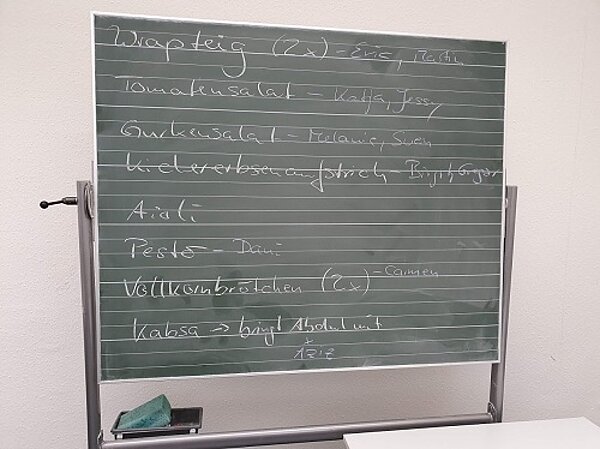 Wrapteig (2x) - Eric, Martin
Tomatensalat - Katja, Jessy
Gurkensalat - Melanie, Sven
Kichererbsenaufstrich - Birgit, Gregor
Aioli
Pesto - Dani
Vollkornbrötchen (2x) - Carmen
Kabsa → bringt Abdul mit
+
Aziz